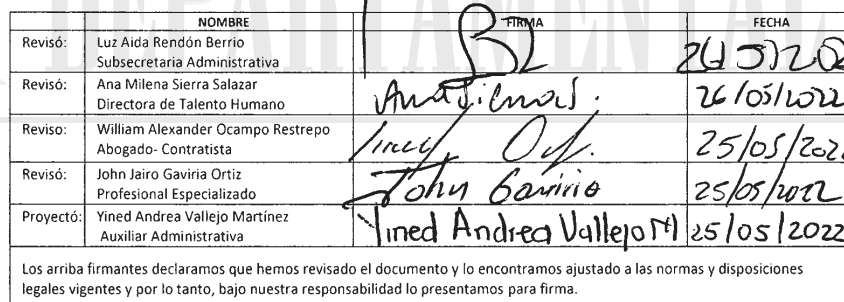 DEPARTAMENTAL
NOMBRE FIRMA FECHA
Revisó: Luz Aida Rendón Berrio
Subsecretaria Administrativa
Revisó: Ana Milena Sierra Salazar
Directora de Talento Humano 26/05/2022
Reviso: William Alexander Ocampo Restrepo
Abogado- Contratista 25/05/202
Revisó: John Jairo Gaviria Ortiz John Gaviria
Profesional Especializado 25/05/2022
Proyectó: Yined Andrea Vallejo Martínez Yined Andrea Vallejo M 25/05/2022
Auxiliar Administrativa
Los arriba firmantes declaramos que hemos revisado el documento y lo encontramos ajustado a las normas y disposiciones
legales vigentes y por lo tanto, bajo nuestra responsabilidad lo presentamos para firma.